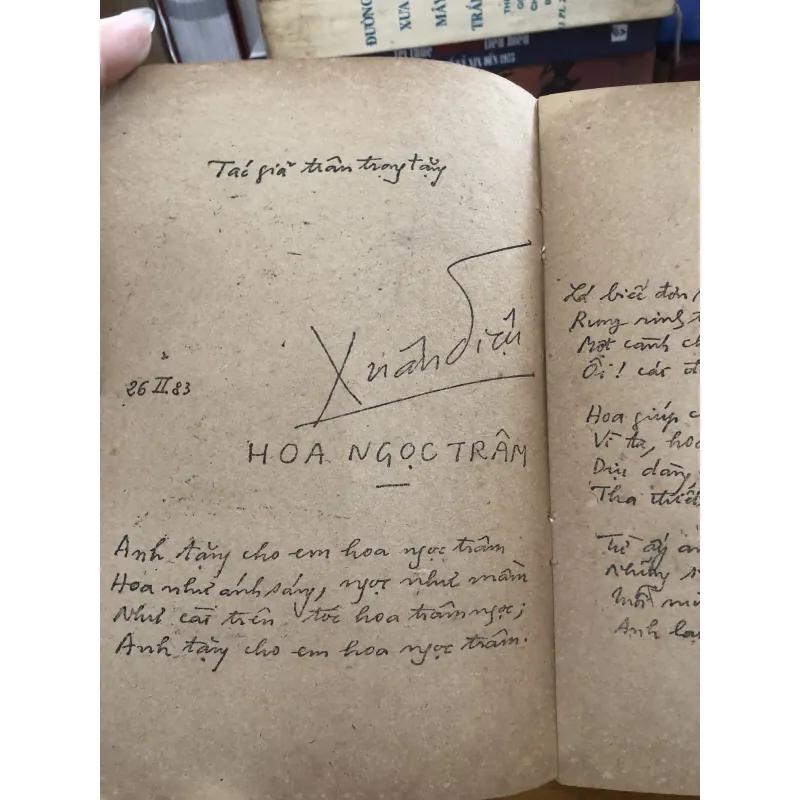 ĐƯỜNG
XƯA
MÂY
TRẮ
Tác giả trân trọng tặng
Xuân Diệu
26 II 83
HOA NGỌC TRÂM
Anh tặng cho em hoa ngọc trâm
Hoa như ánh sáng, ngọc như mầm
Như cài trên tóc hoa trâm ngọc;
Anh tặng cho em hoa ngọc trâm.
Lá biếc đơn
Rung rinh t
Một cành ch
Ôi! các đ
Hoa giúp c
Vì ta, ho
Dịu dàng
Tha thiết
Từ ấy an
Những s
Mỗi mù
Anh lạ